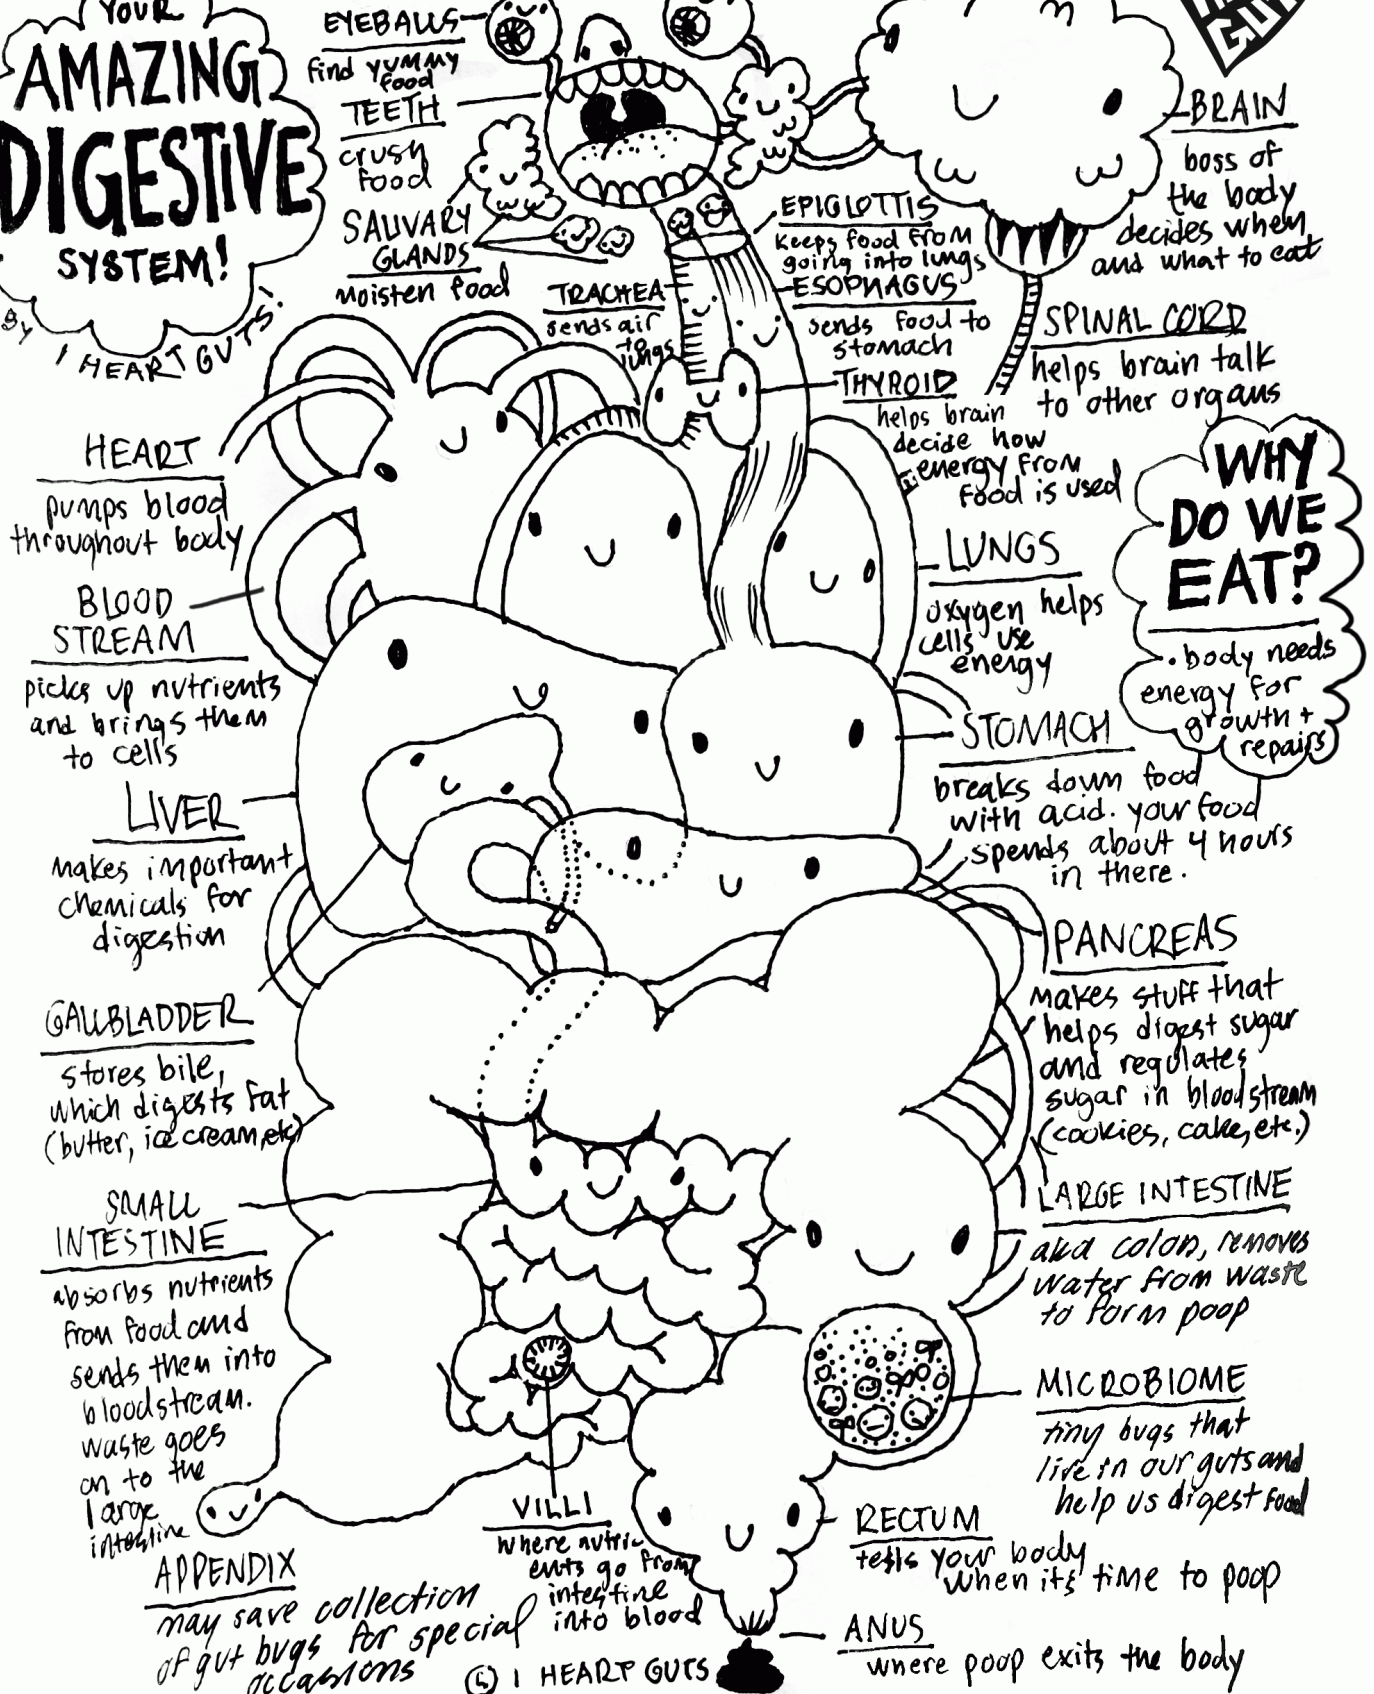 YOUR
AMAZING
DIGESTIVE
SYSTEM!
By I HEART GUTS!
EYEBALLS
find yummy
food
TEETH
crush
food
SALIVARY
GLANDS
moisten food
TRACHEA
sends air
to
lungs
EPIGLOTTIS
keeps food from
going into lungs
ESOPHAGUS
sends food to
stomach
THYROID
helps brain
decide how
energy from
food is used
BRAIN
boss of
the body
decides when
and what to eat
SPINAL CORD
helps brain talk
to other organs
WHY
DO WE
EAT?
• body needs
energy for
growth +
repairs
HEART
pumps blood
throughout body
BLOOD
STREAM
picks up nutrients
and brings them
to cells
LIVER
makes important
chemicals for
digestion
GALLBLADDER
stores bile,
which digests fat
(butter, ice cream, etc)
SMALL
INTESTINE
absorbs nutrients
from food and
sends them into
bloodstream.
waste goes
on to the
large
intestine
APPENDIX
may save collection
of gut bugs for special
occasions
VILLI
where nutri-
ents go from
intestine
into blood
LUNGS
oxygen helps
cells use
energy
STOMACH
breaks down food
with acid. your food
spends about 4 hours
in there.
PANCREAS
makes stuff that
helps digest sugar
and regulates
sugar in bloodstream
(cookies, cake, etc.)
LARGE INTESTINE
aka colon, removes
water from waste
to form poop
MICROBIOME
tiny bugs that
live in our guts and
help us digest food
RECTUM
tells your body
when it's time to poop
ANUS
where poop exits the body
© I HEART GUTS